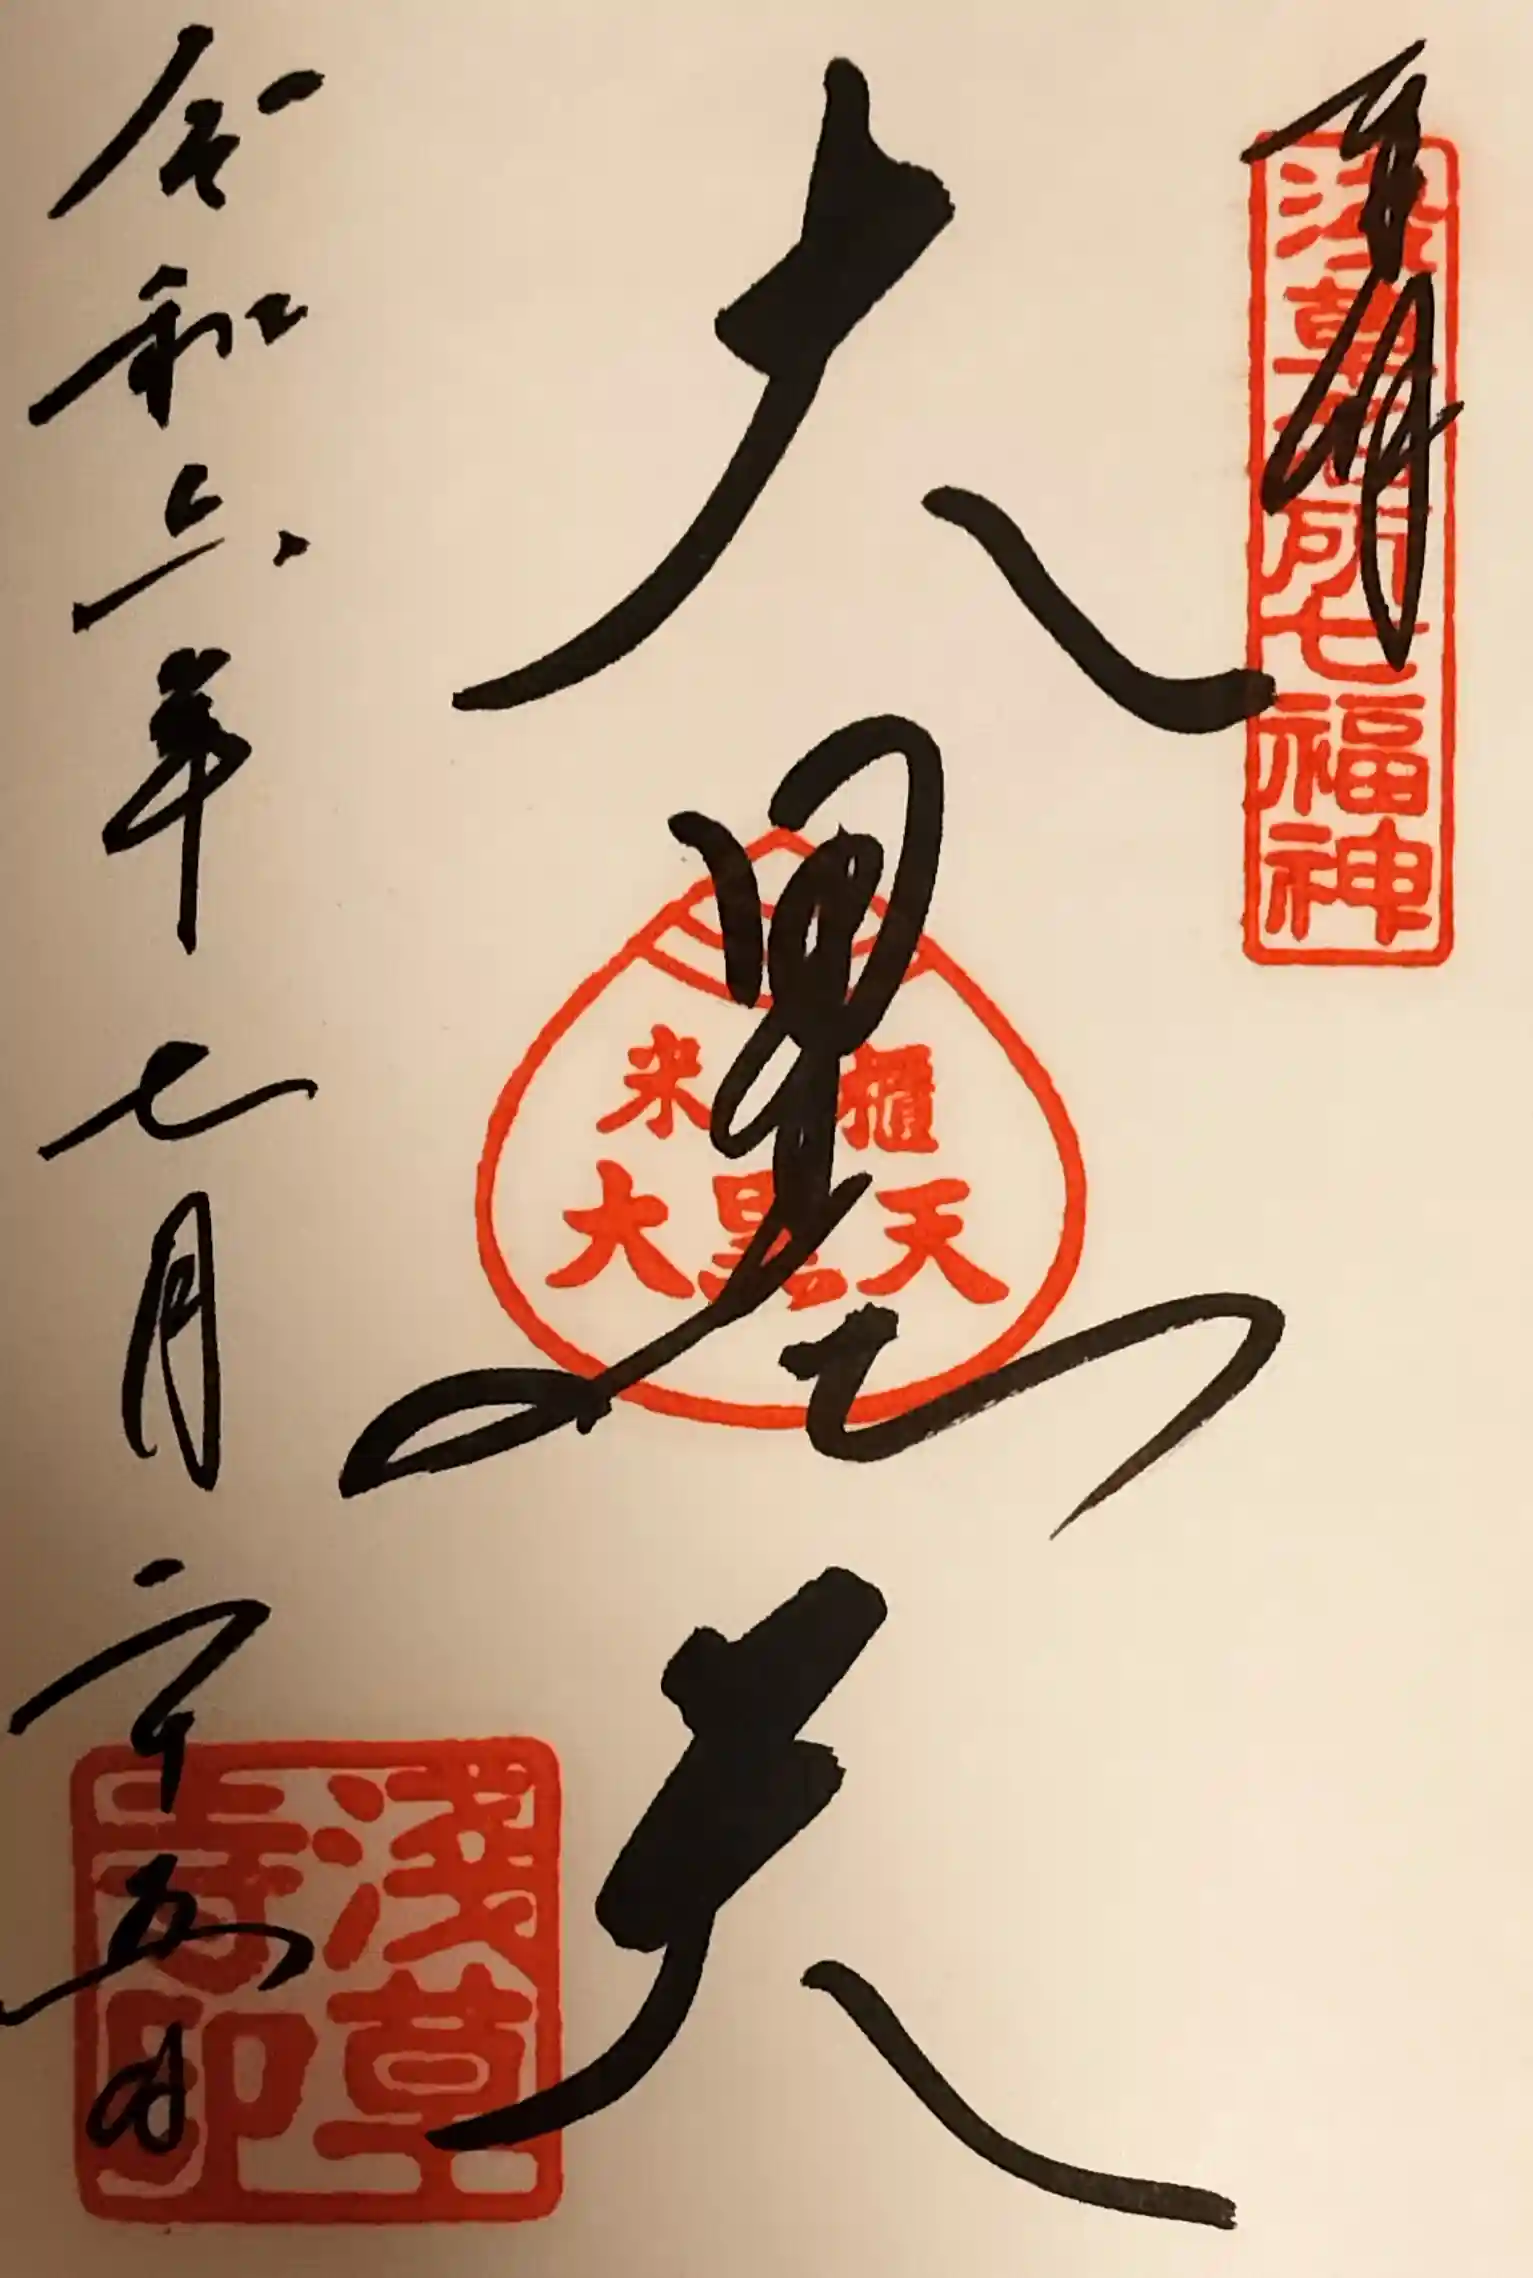 奉拝
浅草名所七福神
大黒天
米櫃
大黒天
令和六年七月二十五日
淺草
寺印